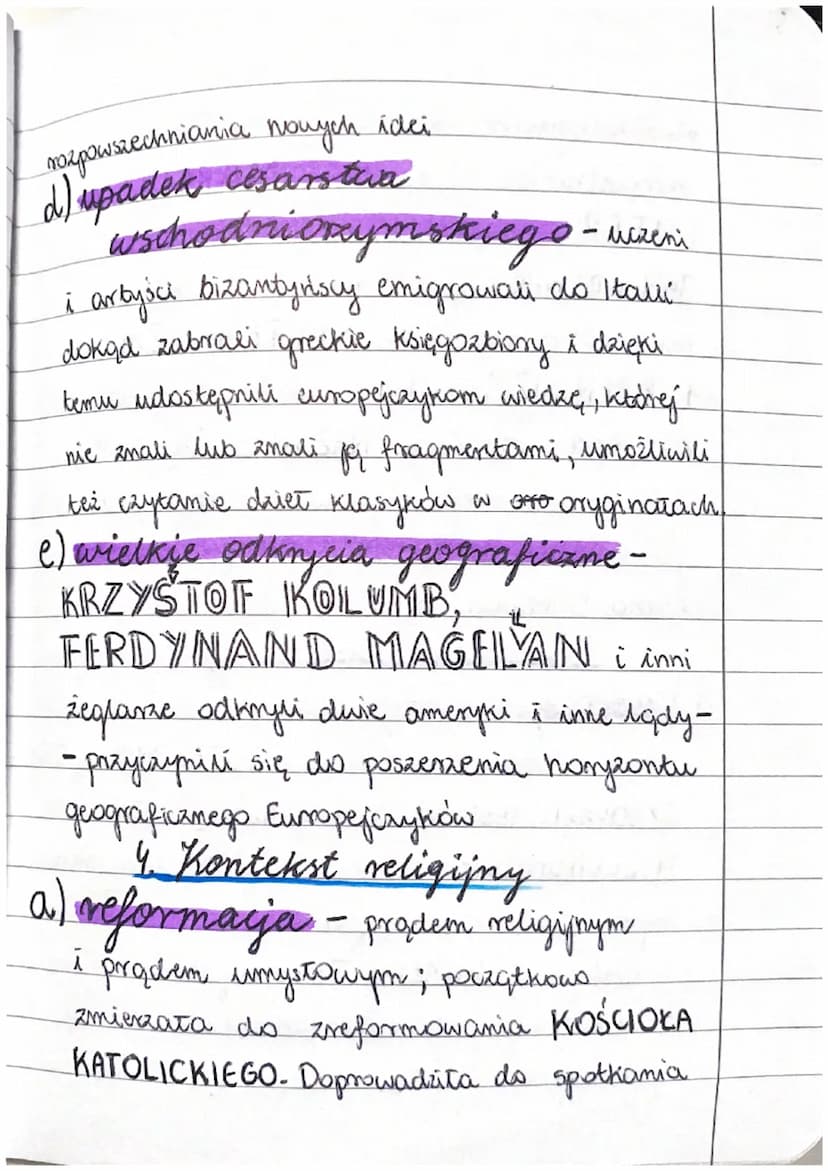 rozpowszechniania nowych idei
d) upadek cesarstwa
wschodniorzymskiego - uczeni
i artyści bizantyńscy emigrowali do Italii
dokąd zabrali greckie księgozbiory i dzięki
temu udostępnili europejczykom wiedzę, której
nie znali lub znali jej fragmentami, umożliwili
też czytanie dzieł klasyków w oryginałach.
e) wielkie odkrycia geograficzne -
KRZYSZTOF KOLUMB,
FERDYNAND MAGELLAN i inni
żeglarze odkryli dwie ameryki i inne lądy-
- przyczynili się do poszerzenia horyzontu
geograficznego Europejczyków
4. Kontekst religijny
a) reformacja - prądem religijnym
i prądem umysłowym; początkowo
zmierzała do zreformowania KOŚCIOŁA
KATOLICKIEGO. Doprowadziła do spotkania